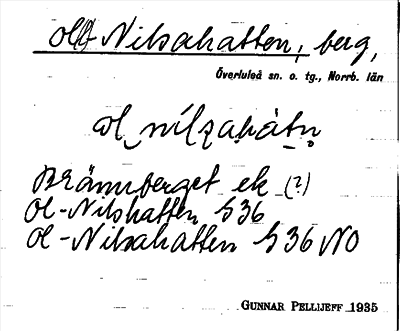 Ol-Nilsahatten, berg,
Överluleå sn. o. tg., Norrb. län
ol nilsahátn̥
Brännberget ek (?)
Ol-Nilshatten S 36
Ol-Nilsahatten S 36 NO
GUNNAR PELLIJEFF 1935